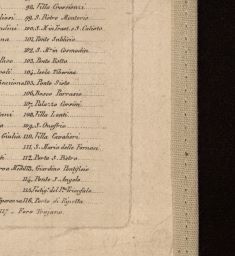 98. Villa Crescenzi
99. S. Pietro Montorio
100. S. M. in Trast. e S. Calisto
101. Ponte Sublicio
102. S. M. in Cosmedin
103. Ponte Rotto
104. Isola Tiberina
105. Ponte Sisto
106. Bosco Parrasio
107. Palazzo Corsini
108. Villa Lanti
109. S. Onofrio
Giulia 110. Villa Cavalieri
111. S. Maria delle Fornaci
112. Porta S. Pietro
113. Giardino Pontificio
114. Ponte S. Angelo
115. Vestigi del P. Trionfale
116. Porto di Ripetta
117. Foro Trajano